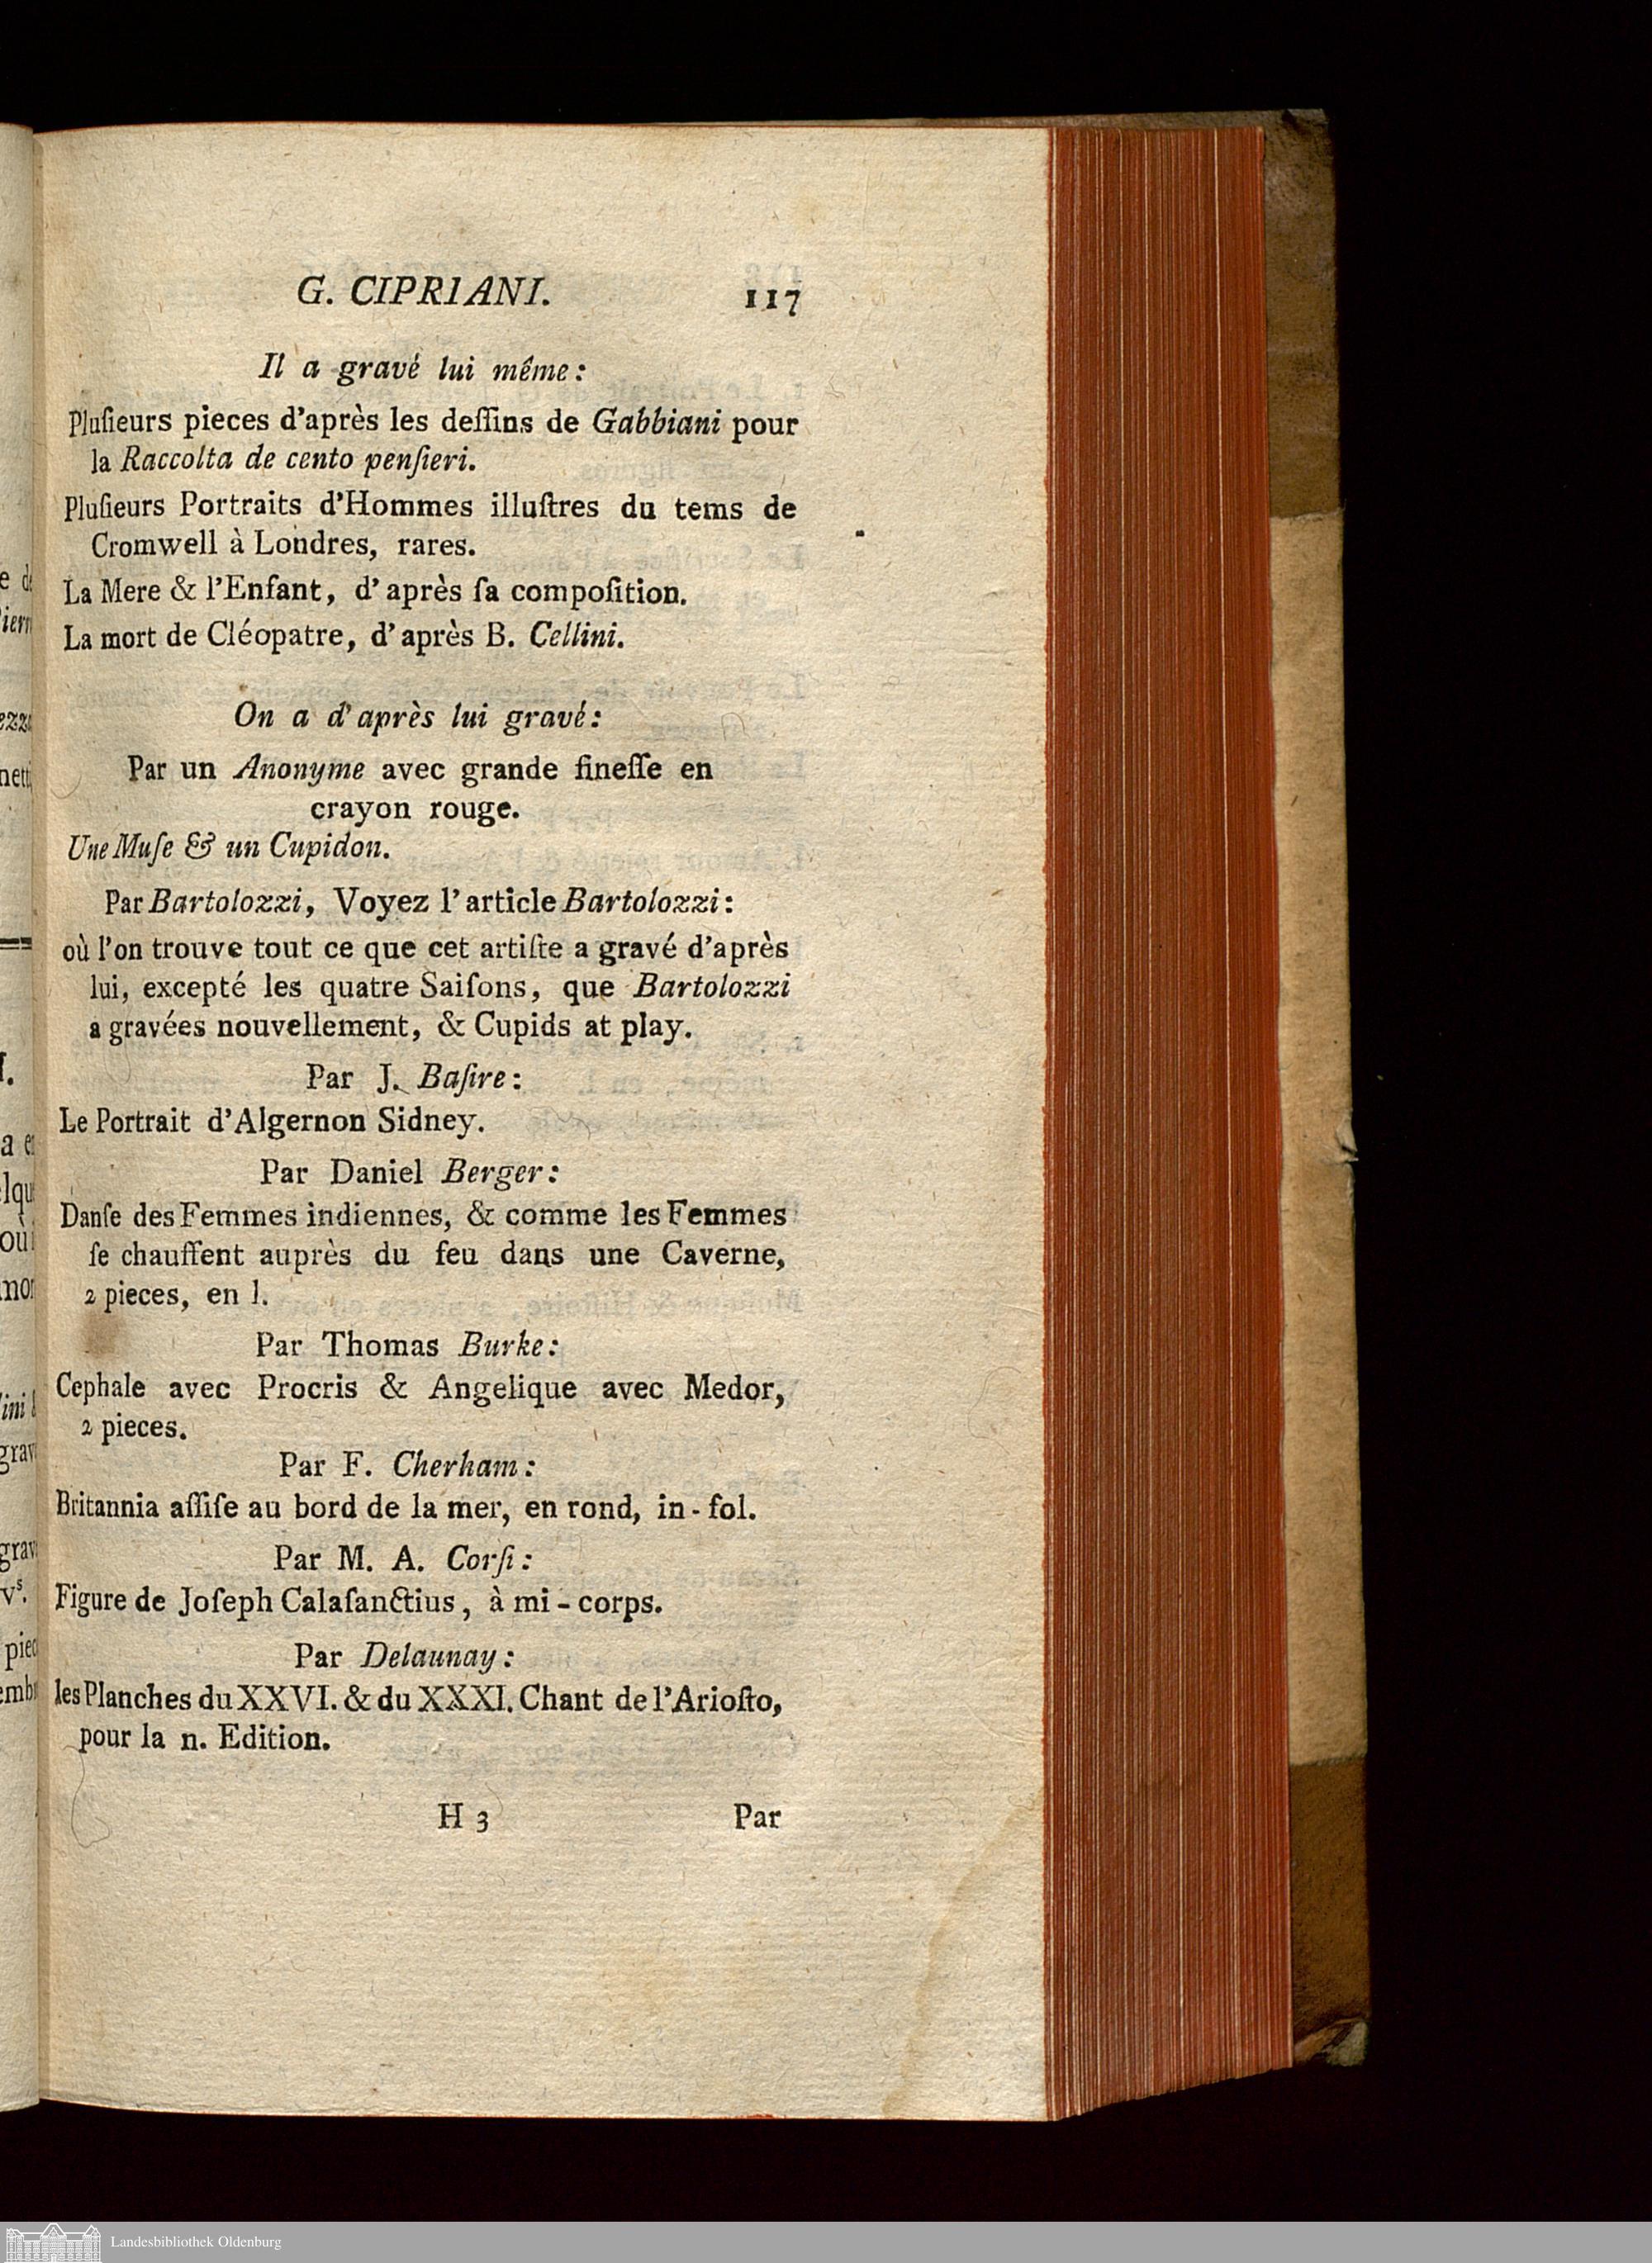 G. CIPRIANI. 117
Il a gravé lui même:
Pluſieurs pieces d'après les deſſins de Gabbiani pour
la Raccolta de cento penſieri.
Pluſieurs Portraits d'Hommes illuſtres du tems de
Cromwell à Londres, rares.
La Mere & l'Enfant, d'après ſa compoſition.
La mort de Cléopatre, d'après B. Cellini.
On a d'après lui gravé:
Par un Anonyme avec grande fineſſe en
crayon rouge.
Une Muſe & un Cupidon.
Par Bartolozzi, Voyez l'article Bartolozzi:
où l'on trouve tout ce que cet artiſte a gravé d'après
lui, excepté les quatre Saiſons, que Bartolozzi
a gravées nouvellement, & Cupids at play.
Par J. Baſire:
Le Portrait d'Algernon Sidney.
Par Daniel Berger:
Danſe des Femmes indiennes, & comme les Femmes
ſe chauffent auprès du feu dans une Caverne,
2 pieces, en l.
Par Thomas Burke:
Cephale avec Procris & Angelique avec Medor,
2 pieces.
Par F. Cherham:
Britannia aſſiſe au bord de la mer, en rond, in-fol.
Par M. A. Corſi:
Figure de Joſeph Calaſanctius, à mi-corps.
Par Delaunay:
les Planches du XXVI. & du XXXI. Chant de l'Arioſto,
pour la n. Edition.
H 3 Par
Landesbibliothek Oldenburg